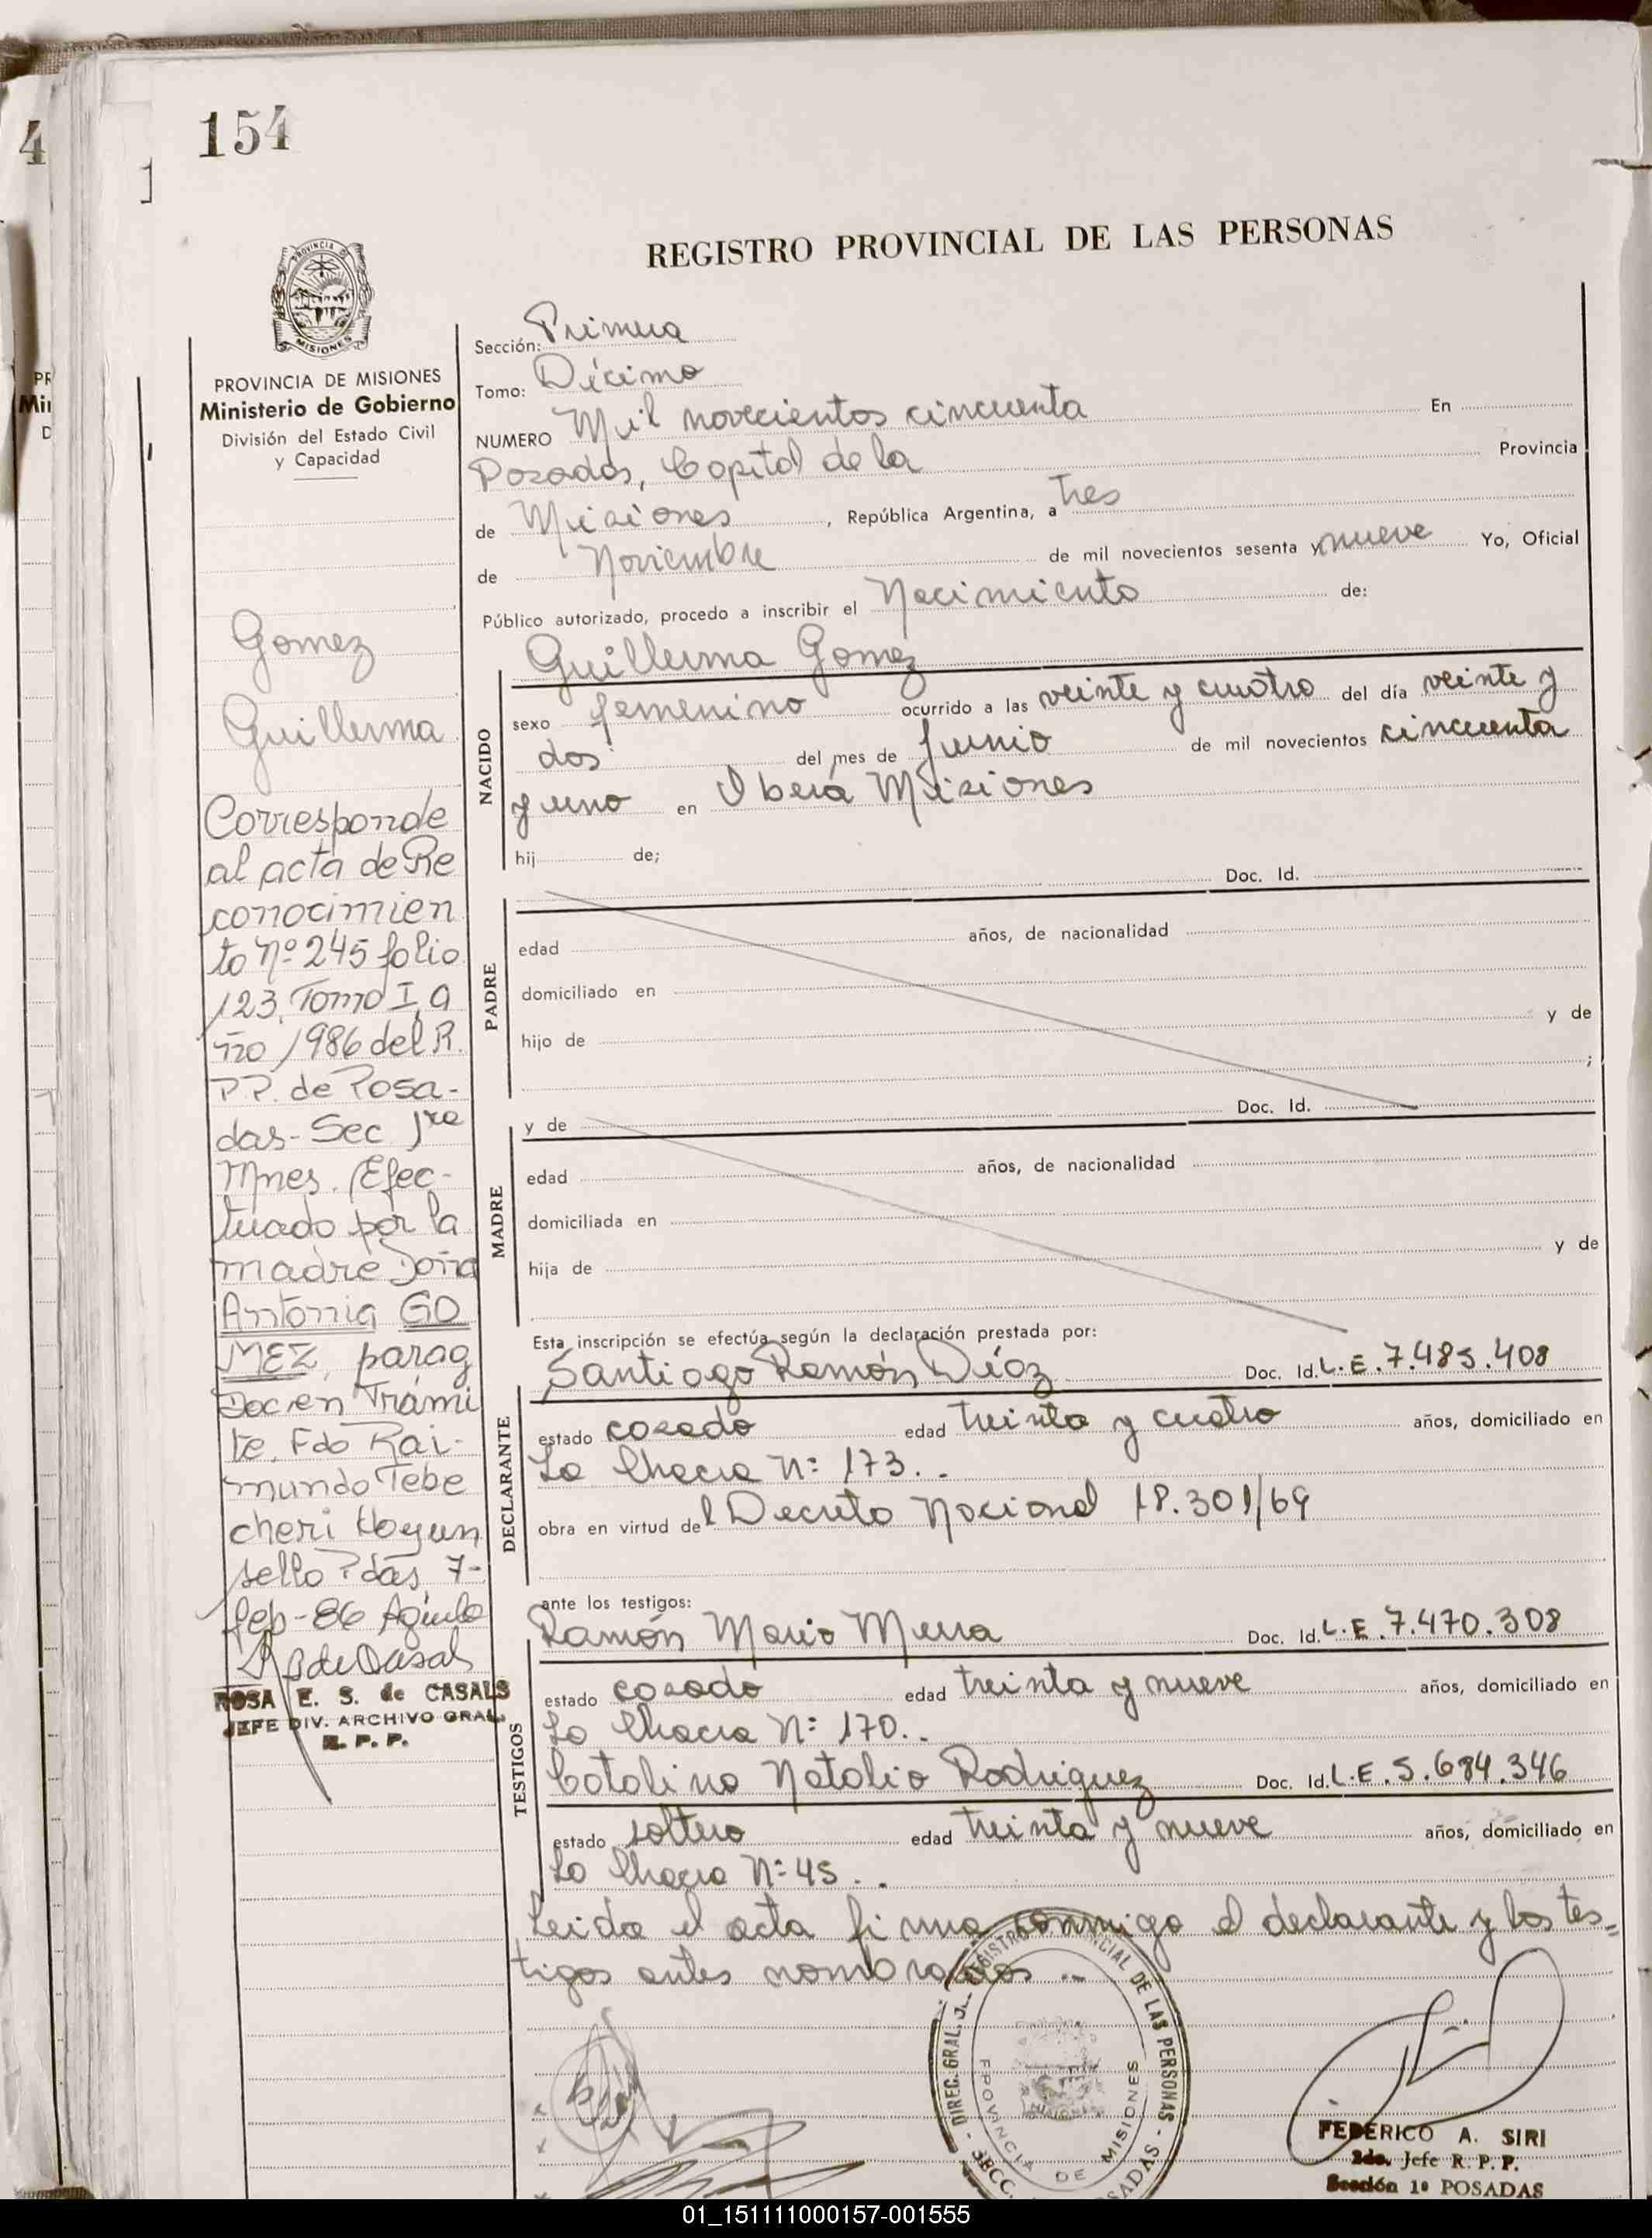 154
REGISTRO PROVINCIAL DE LAS PERSONAS
PROVINCIA
MISIONES
PROVINCIA DE MISIONES
Ministerio de Gobierno
División del Estado Civil
y Capacidad
Gomez
Guillerma
Corresponde
al acta de Re
conocimien
to Nº 245 folio
123, Tomo I, a
ño 1986 del R.
P.P. de Posa-
das - Sec 1ra
Mnes. Efec-
tuado por la
madre Doña
Antonia GO
MEZ, parag
Doc en Trámi
te. Fdo Rai-
mundo Tebe
cheri Hay un
sello Pdas, 7-
feb-86
ROSA E. S. de CASALS
JEFE DIV. ARCHIVO GRAL.
R. P. P.
Sección: Primera
Tomo: Décimo
NUMERO Mil novecientos cincuenta En
Posadas, Capital de la Provincia
de Misiones, República Argentina, a tres
de Noviembre de mil novecientos sesenta y nueve Yo, Oficial
Público autorizado, procedo a inscribir el Nacimiento de:
NACIDO
Guillerma Gomez
sexo femenino ocurrido a las veinte y cuatro del día veinte y
dos del mes de Junio de mil novecientos cincuenta
y uno en Oberá Misiones
hij de;
PADRE
Doc. Id.
edad años, de nacionalidad
domiciliado en
hijo de y de
;
MADRE
y de Doc. Id.
edad años, de nacionalidad
domiciliada en
hija de y de
Esta inscripción se efectúa según la declaración prestada por:
DECLARANTE
Santiago Ramón Díaz Doc. Id. L.E.7.485.408
estado casado edad treinta y cuatro años, domiciliado en
La Chacra Nº 173..
obra en virtud del Decreto Nacional 18.301/69
ante los testigos:
TESTIGOS
Ramón Mario Doc. Id. L.E.7.470.308
estado casado edad treinta y nueve años, domiciliado en
La Chacra Nº 170..
Catalino Natalio Rodriguez Doc. Id. L.E.5.684.346
estado soltero edad treinta y nueve años, domiciliado en
La Chacra Nº 45..
Leida el acta firma conmigo el declarante y los tes=
tigos antes nombrados ..
DIREC. GRAL. REGISTRO PROVINCIAL DE LAS PERSONAS - SECC. POSADAS -
PROVINCIA DE MISIONES
FEDERICO A. SIRI
2do. Jefe R. P. P.
Sección 1º POSADAS
01_151111000157-001555